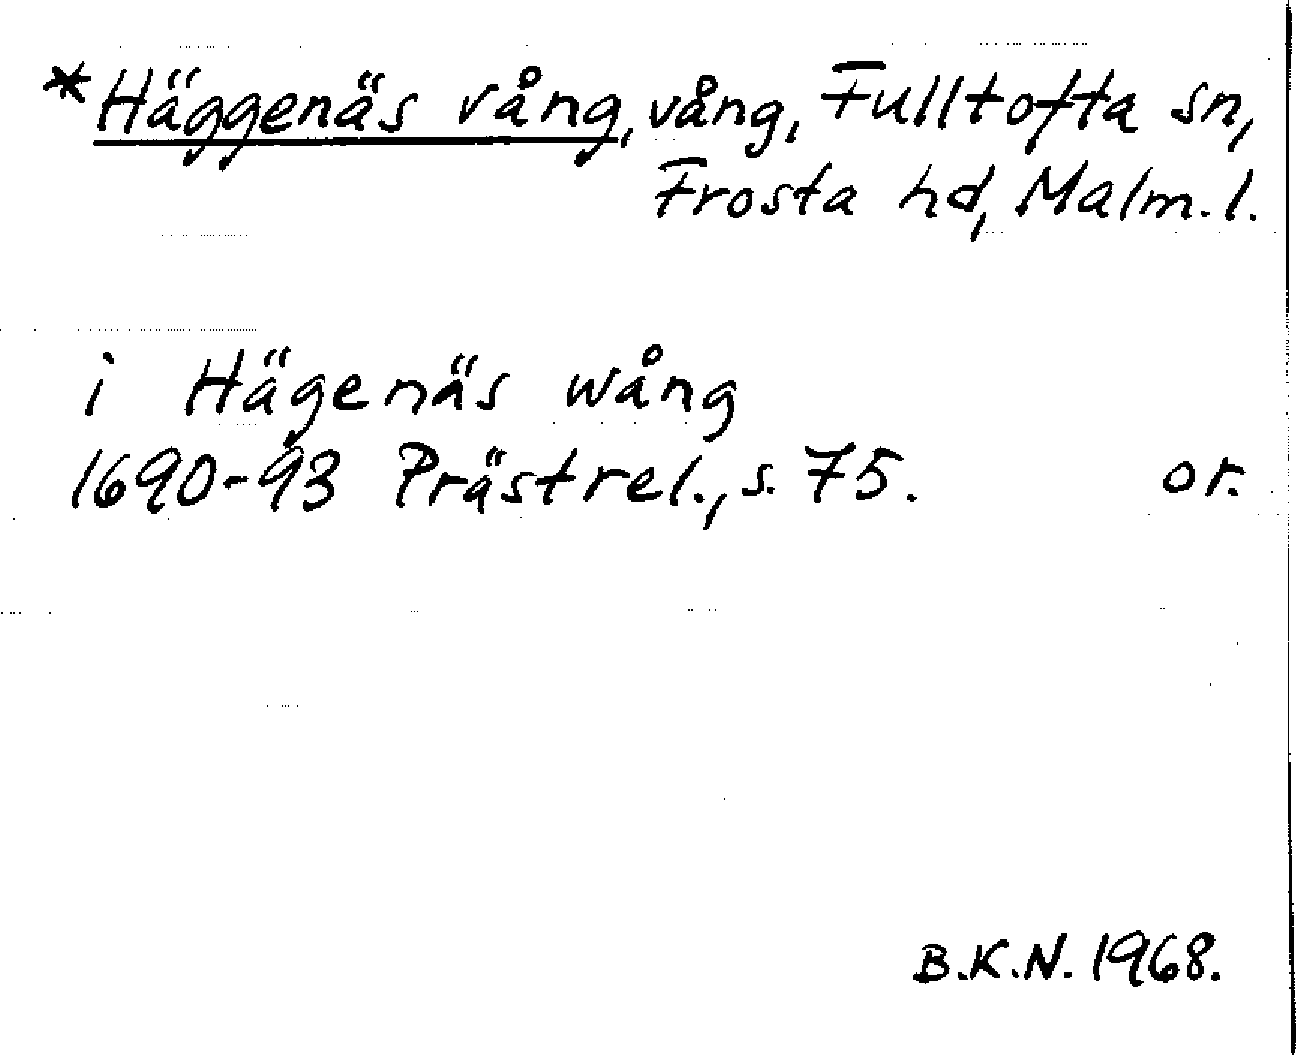 *Häggenäs vång, vång, Fulltofta sn,
Frosta hd, Malm. l.
i Hägenäs wång
1690-93 Prästrel., s. 75. or.
B.K.N. 1968.